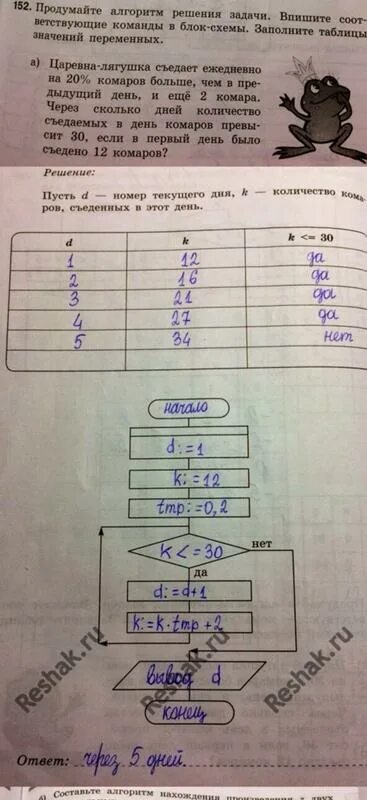 152. Продумайте алгоритм решения задачи. Впишите соот-
ветствующие команды в блок-схемы. Заполните таблицы
значений переменных.
а) Царевна-лягушка съедает ежедневно
на 20% комаров больше, чем в пре-
дыдущий день, и ещё 2 комара.
Через сколько дней количество
съедаемых в день комаров превы-
сит 30, если в первый день было
съедено 12 комаров?
Решение:
Пусть d — номер текущего дня, k — количество кома-
ров, съеденных в этот день.
d k k <= 30
1 12 да
2 16 да
3 21 да
4 27 да
5 34 нет
начало
d:=1
k:=12
tmp:=0,2
k<=30 нет
да
d:=d+1
k:=k·tmp+2
вывод d
конец
Reshak.ru
Reshak.ru
Ответ: через 5 дней.
Составьте алгоритм нахождения произведения двух